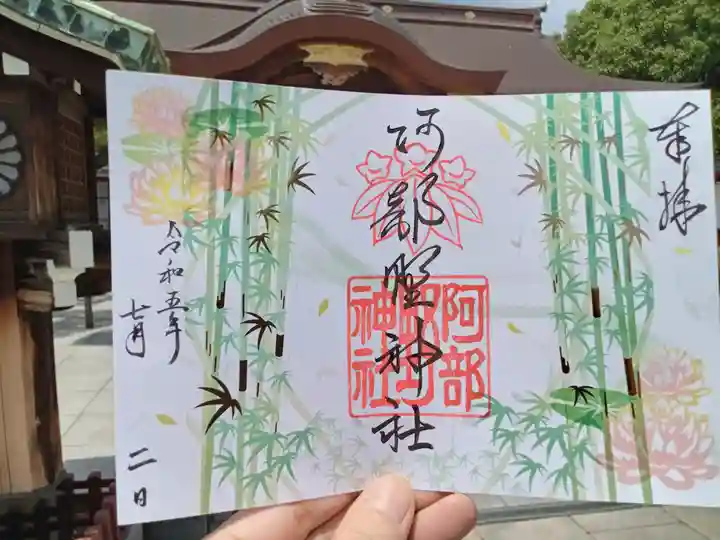 奉拝
阿部野神社
阿部
野
神社
令和五年
七月
二日